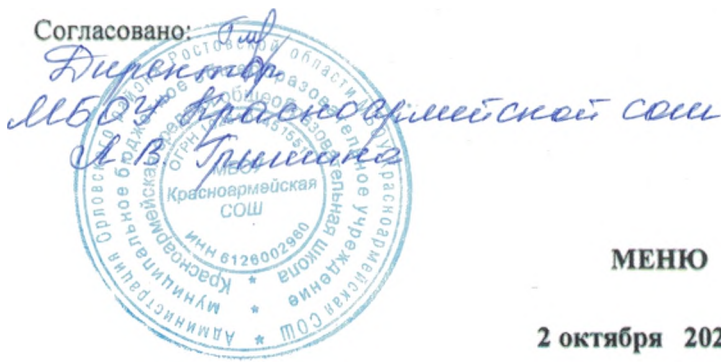 Согласовано:
Директор
МБОУ Красноармейской сош
Л В. Гришина
Администрация Орловского района Ростовской области
МБОУ Красноармейская СОШ
муниципальное бюджетное общеобразовательное учреждение
Красноармейская средняя общеобразовательная школа
ОГРН
МБОУ
Красноармейская
СОШ
ИНН 6126002960
МЕНЮ
2 октября 202